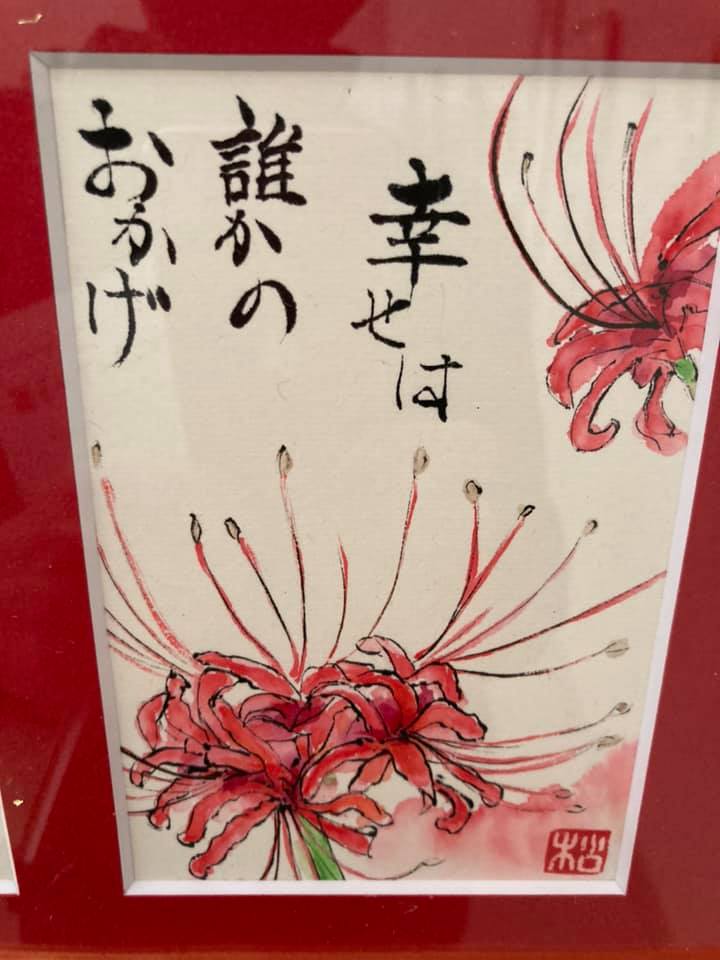 幸せは
誰かの
おかげ
松